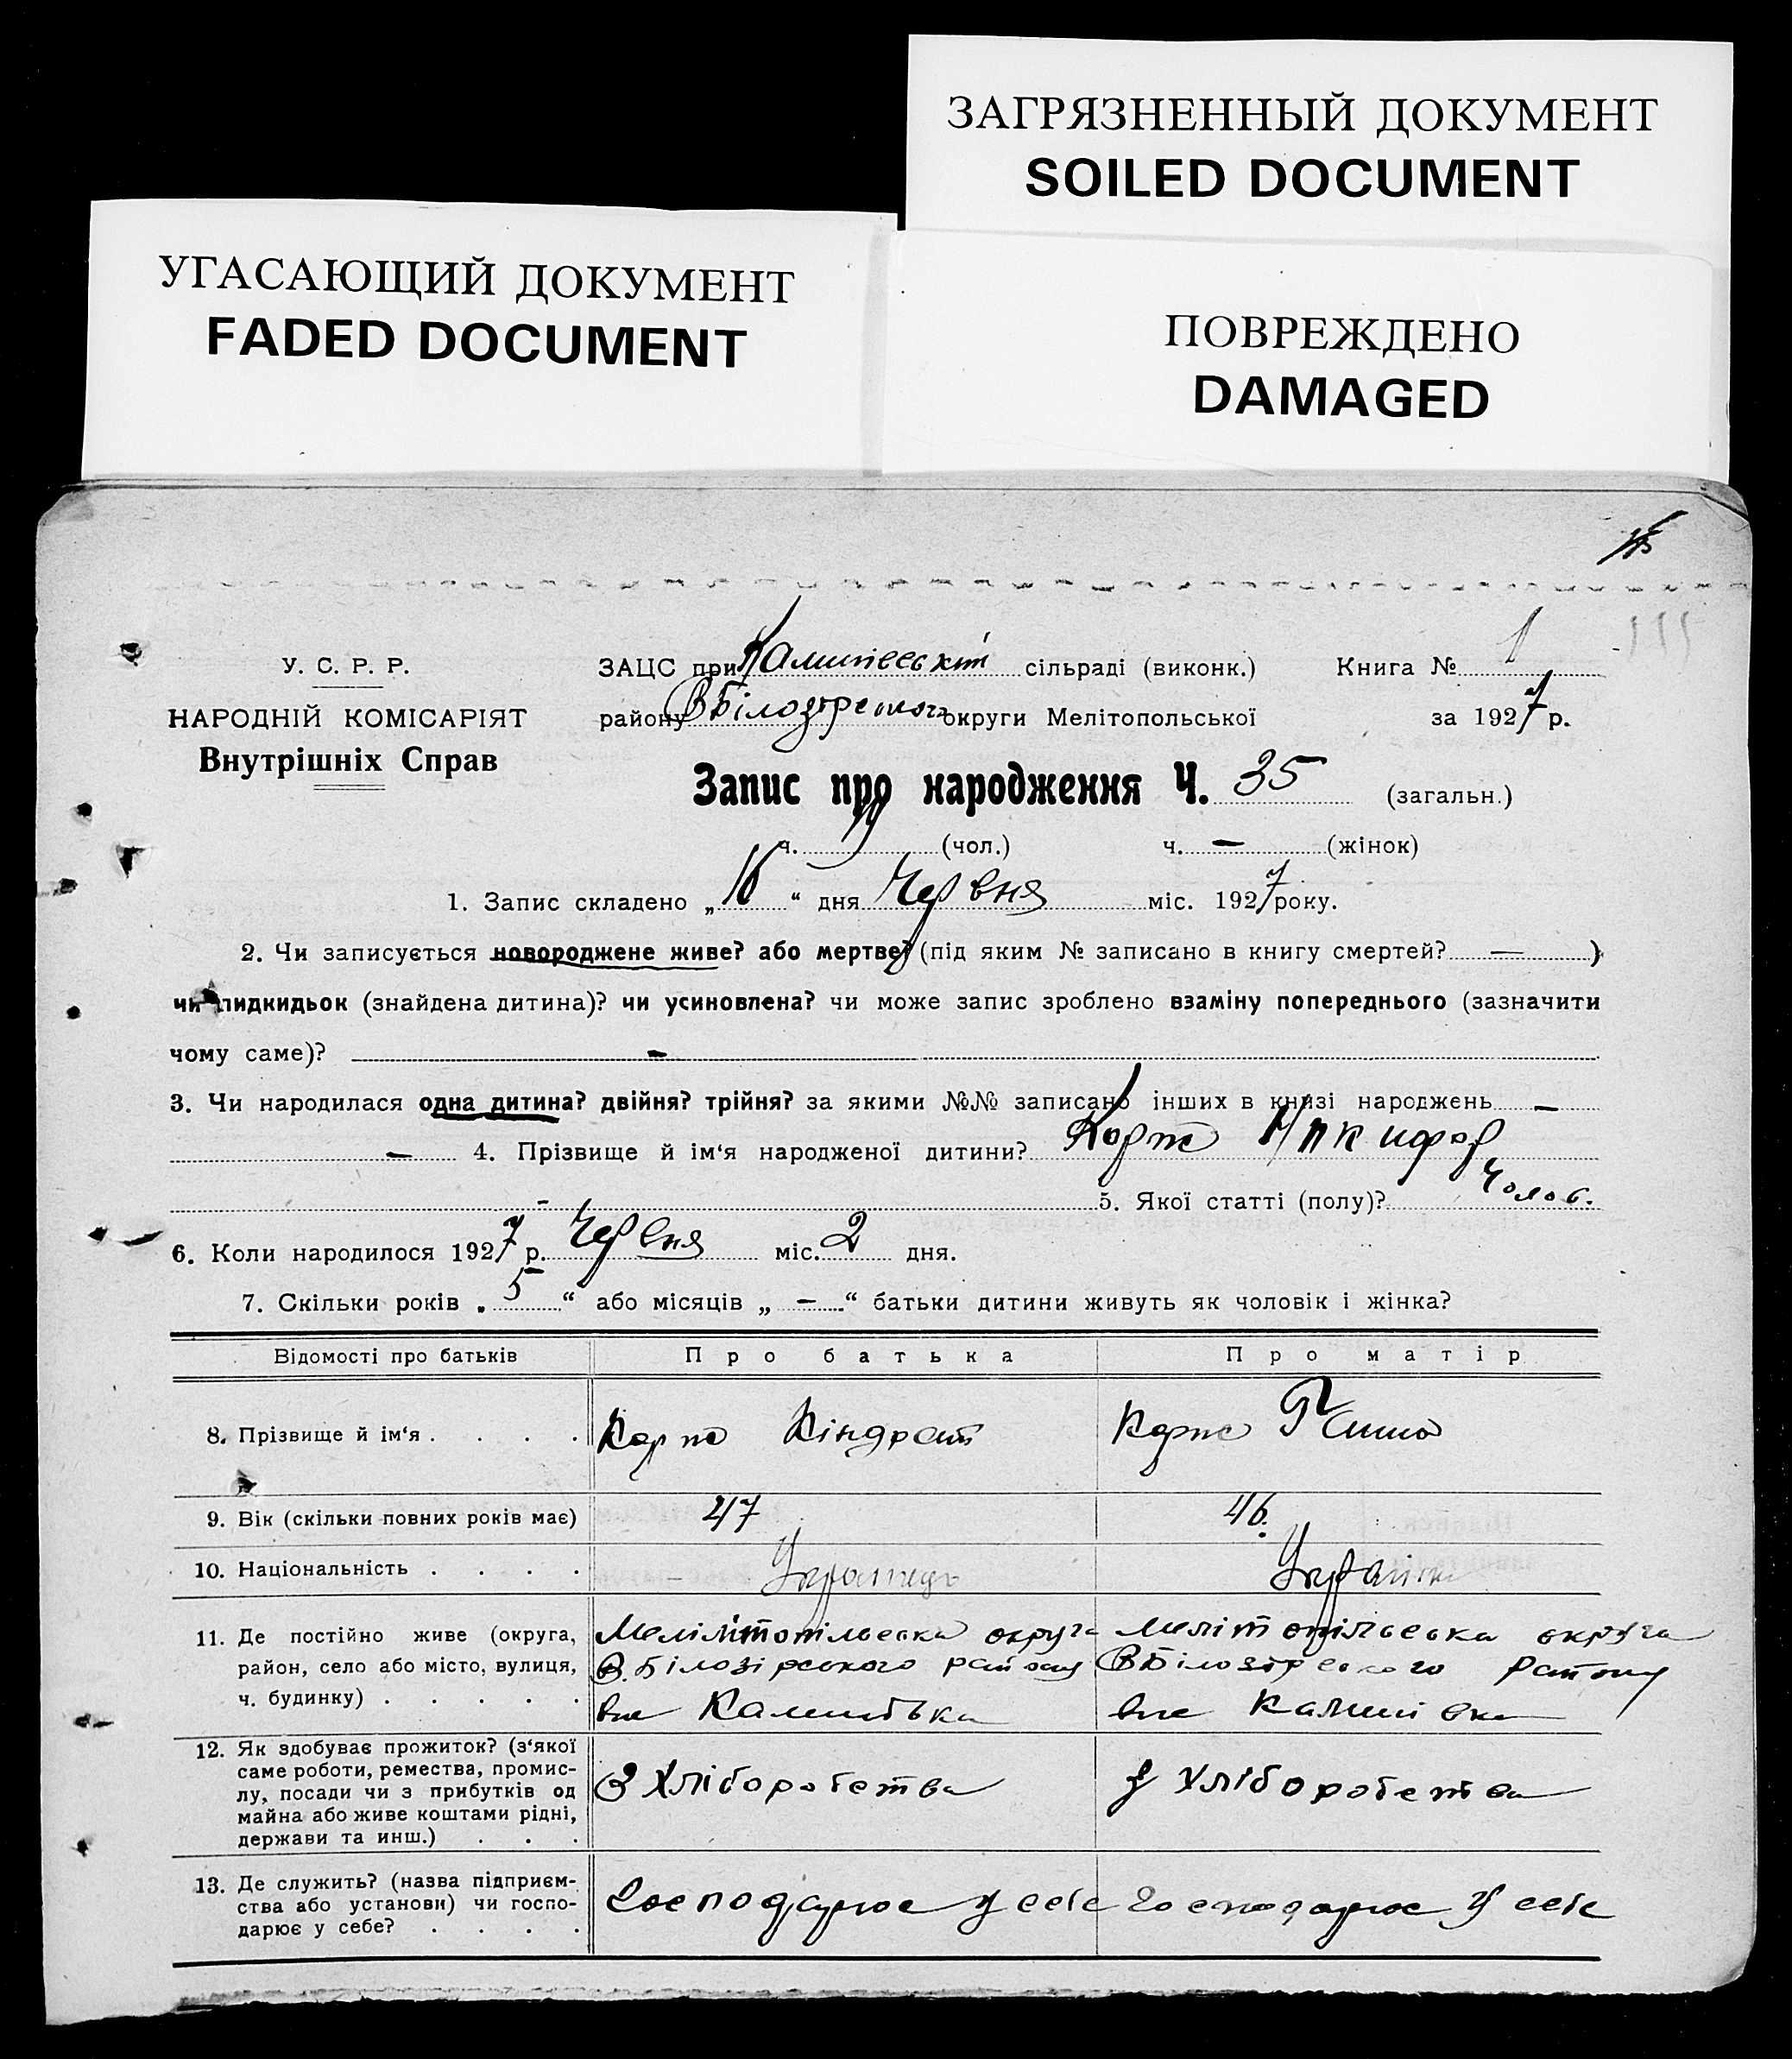 ЗАГРЯЗНЕННЫЙ ДОКУМЕНТ
SOILED DOCUMENT
УГАСАЮЩИЙ ДОКУМЕНТ
FADED DOCUMENT
ПОВРЕЖДЕНО
DAMAGED
У. С. Р. Р.
НАРОДНІЙ КОМІСАРІЯТ
Внутрішніх Справ
ЗАЦС при сільраді (виконк.) Книга № 1
району округи Мелітопольської за 1927 р.
Запис про народження Ч. 35 (загальн.)
ч. 19 (чол.) ч. — (жінок)
1. Запис складено „ “ дня Червня міс. 1927 року.
2. Чи записується новороджене живе? або мертве? (під яким № записано в книгу смертей? — )
чи підкидьок (знайдена дитина)? чи усиновлена? чи може запис зроблено взаміну попереднього (зазначити
чому саме)? —
3. Чи народилася одна дитина? двійня? трійня? за якими №№ записано інших в книзі народжень —
— 4. Прізвище й ім‘я народженої дитини? Корж
5. Якої статті (полу)? Чолов.
6. Коли народилося 1927 р. Червня міс. 2 дня.
7. Скільки років „ 5 “ або місяців „ — “ батьки дитини живуть як чоловік і жінка?
Відомості про батьків Про батька Про матір
8. Прізвище й ім‘я . . . . Корж Кіндрат Корж
9. Вік (скільки повних років має) 47 46.
10. Національність . . . . Українець Українка
11. Де постійно живе (округа,
район, село або місто, вулиця,
ч. будинку) . . . . .
Мелітопільська округа
В.Білозірського району
Калинівка
Мелітопільська округа
ВБілозірського району
Калинівка
12. Як здобуває прожиток? (з‘якої
саме роботи, ремества, промис-
лу, посади чи з прибутків од
майна або живе коштами рідні,
держави та инш.) . . .
З Хліборобства
З Хліборобства
13. Де служить? (назва підприєм-
ства або установи) чи госпо-
дарює у себе? . . . .
Господарює у себе
Господарює у себе